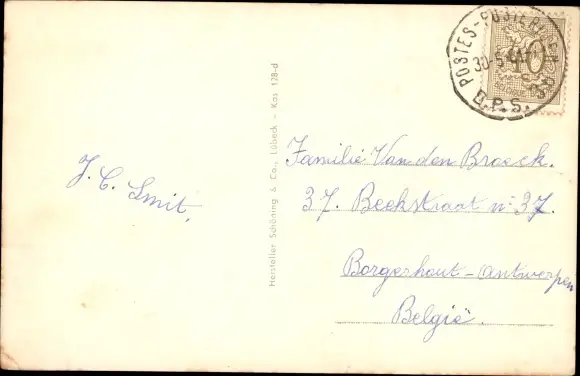 J. C. Smit,
Hersteller Schöning & Co., Lübeck - Kas 128-d
POSTES-POSTERIJEN
B.P.S.
40
Familie Van den Broeck.
37. Beekstraat no 37.
Borgerhout-Antwerpen
België.